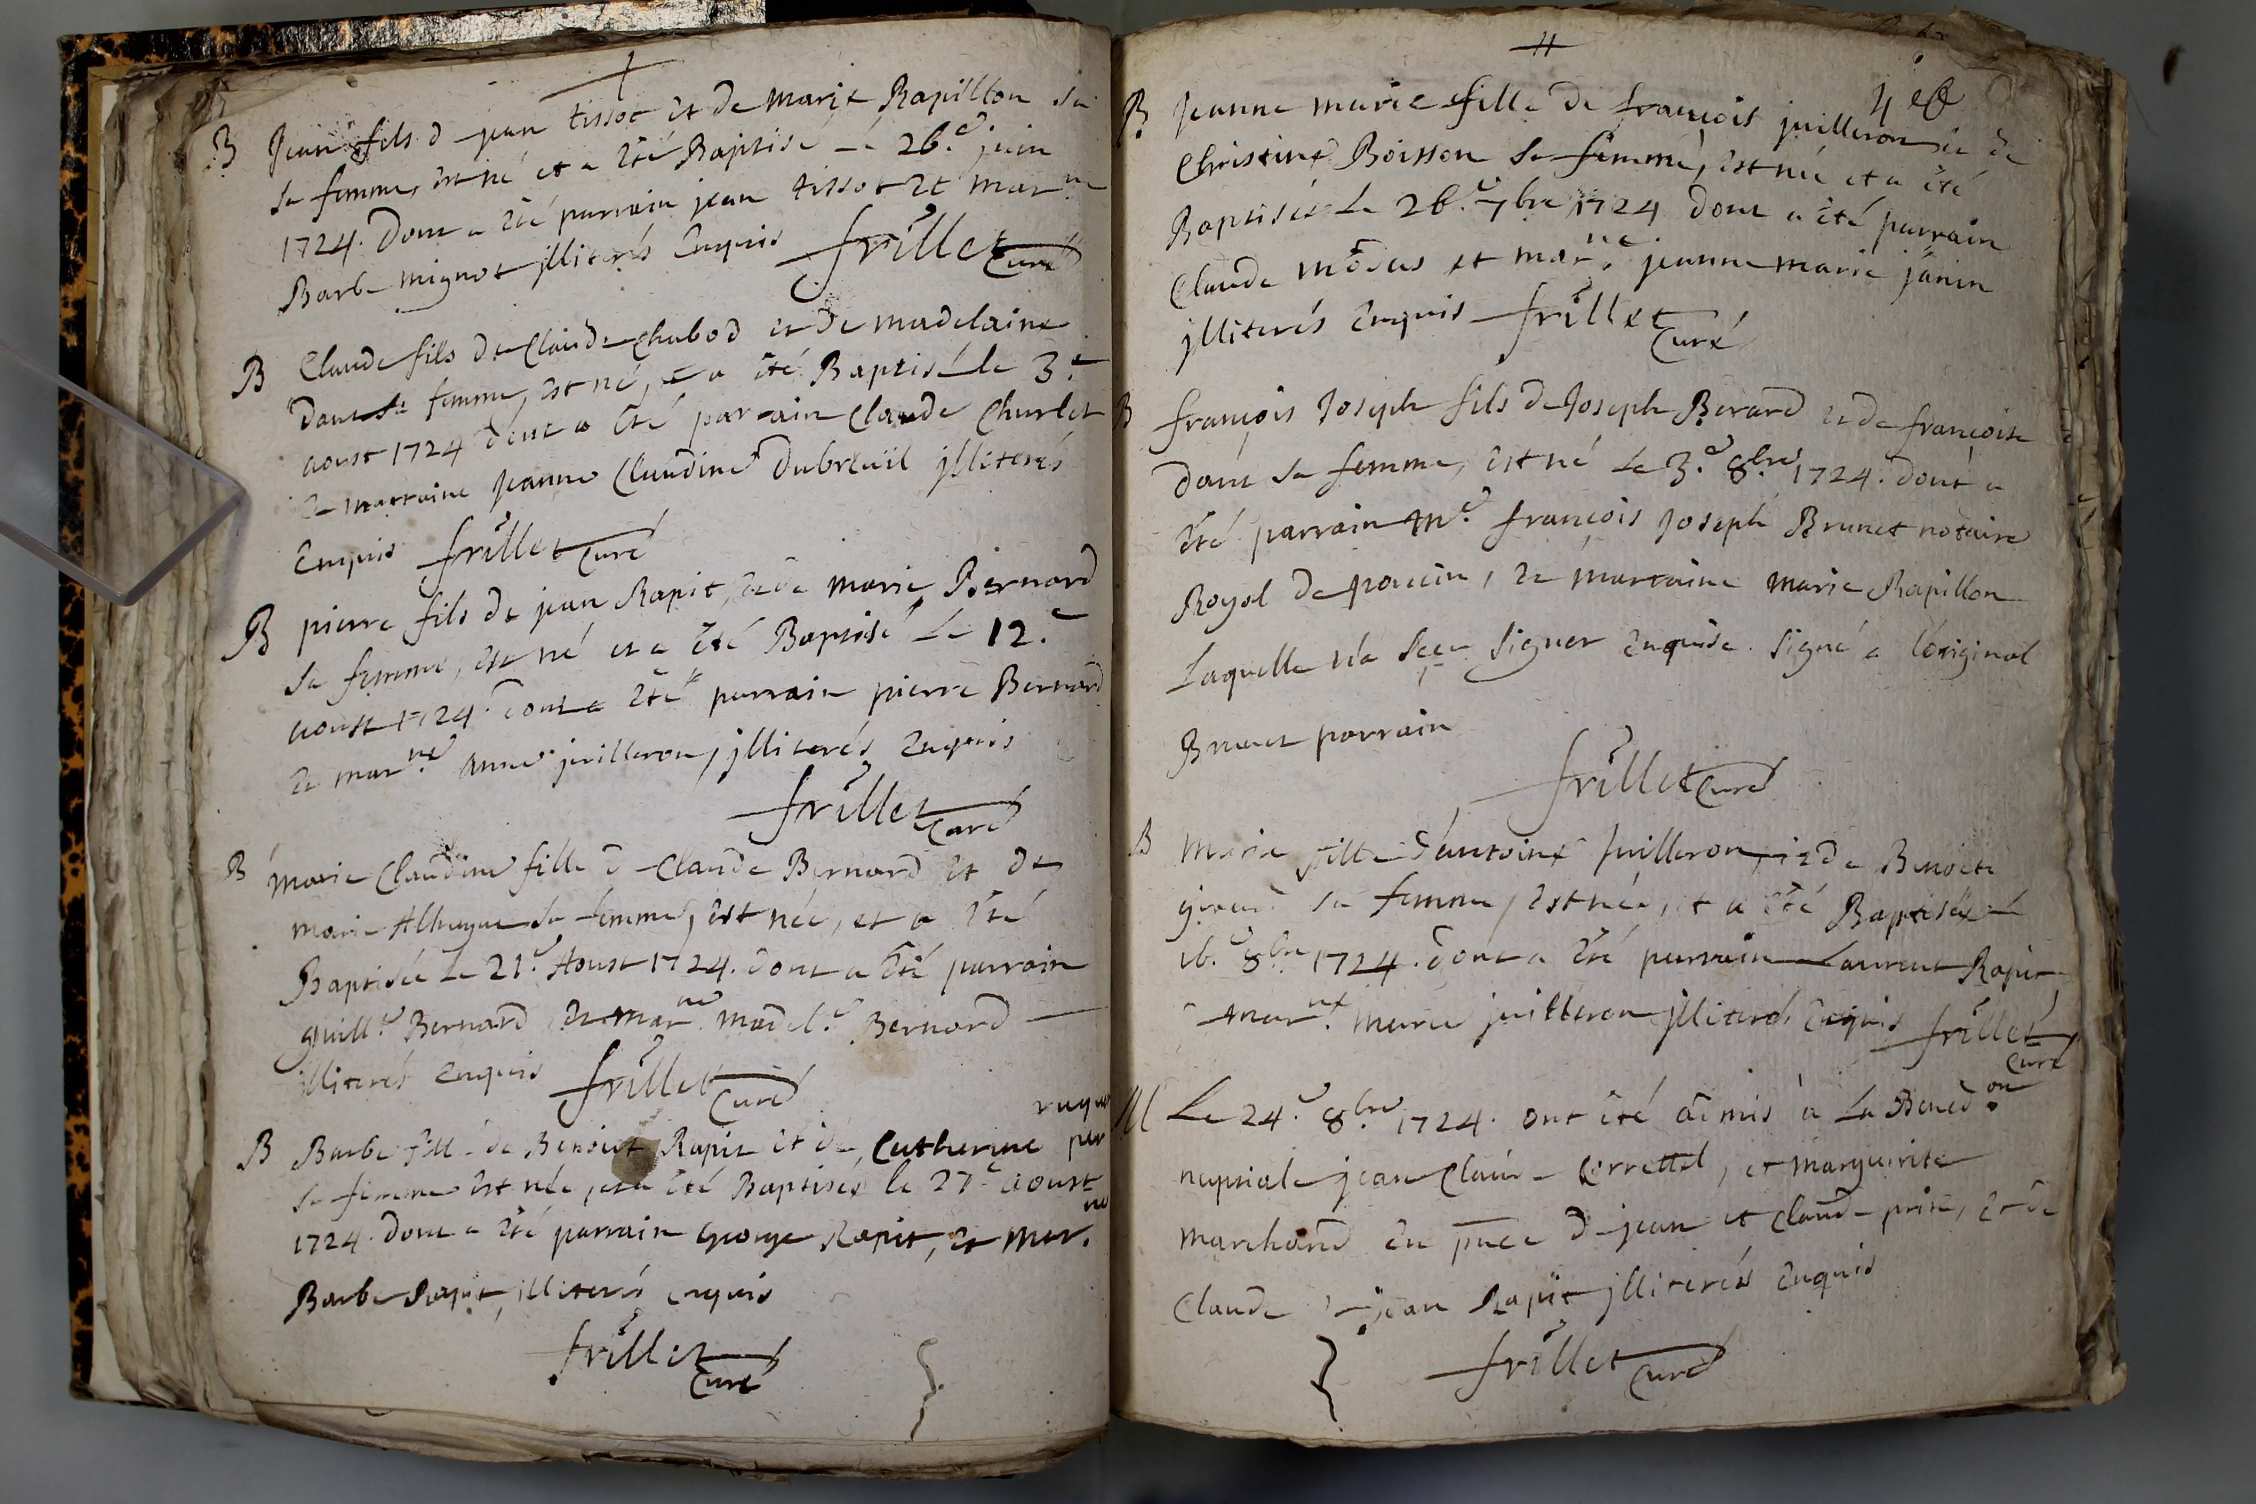 B Jean fils d jean tissot et de marie Rapillon sa
sa femme, est né et a été Baptisé le 26.e juin
1724. Dont a été parrain jean tissot et mar ne
Barbe mignot jlliterés Enquis frillet Curé
B Claude fils de Claude Chabod et de madelaine
Dant sa femme, est né, et a été Baptisé le 3.e
aoust 1724 dont a été parrain Claude Charlet
et marraine jeanne Claudine Dubreüil jlliterés
Enquis frillet Curé
B pierre fils de jean Rapit, et de marie Bernard
sa femme, est né et a été Baptisé Le 12.e
aoust 1724. Dont a été parrain pierre Bernard
et mar ne anne juilleron, jlliterés Enquis
frillet Curé
B marie Claudine fille d Claude Bernard et de
marie sa femme, est née, et a été
Baptisée Le 21.e Aoust 1724. dont a été parrain
guill.e Bernard et mar ne madel.e Bernard
illiterés Enquis frillet Curé
B Barbe fille de Benoit Rapit et de Catherine
sa femme est née, et a été Baptisée le 27.e aoust
1724. dont a été parrain george Rapit, et mar. ne
Barbe Rapit, illiterés enquis
frillet Curé
B Jeanne marie fille de françois juilleron et de
Christine Boisson sa femme, est née et a été
Baptisée Le 26.e 7bre 1724 dont a été parrain
Claude et mar. ne jeanne marie janin
jlliterés Enquis frillet Curé
B françois Joseph fils de Joseph Berard et de françoise
dant sa femme, est né Le 3.e 8.bre 1724. dont a
été parrain Me. françois Joseph Brunet notaire
Royal de poncin, et marraine marie Rapillon
Laquelle n'a sçeu signer enquise. signé a l'original
Brunet parrain
frillet Curé
B Marie fille d'antoine Juilleron, et de Benoite
sa femme, est née, et a été Baptisée le
16.e 8.bre 1724. dont a été parrain Laurent Rapit
et mar. ne marie juilleron jlliterés Enquis frillet
Curé
M Le 24.e 8.bre 1724. ont été admis à La Bened.on
nuptiale jean Claude Cerrettel, et marguerite
marchand en pnce d jean et Claude prin, et de
Claude et jean Rapit jlliterés Enquis
frillet Curé